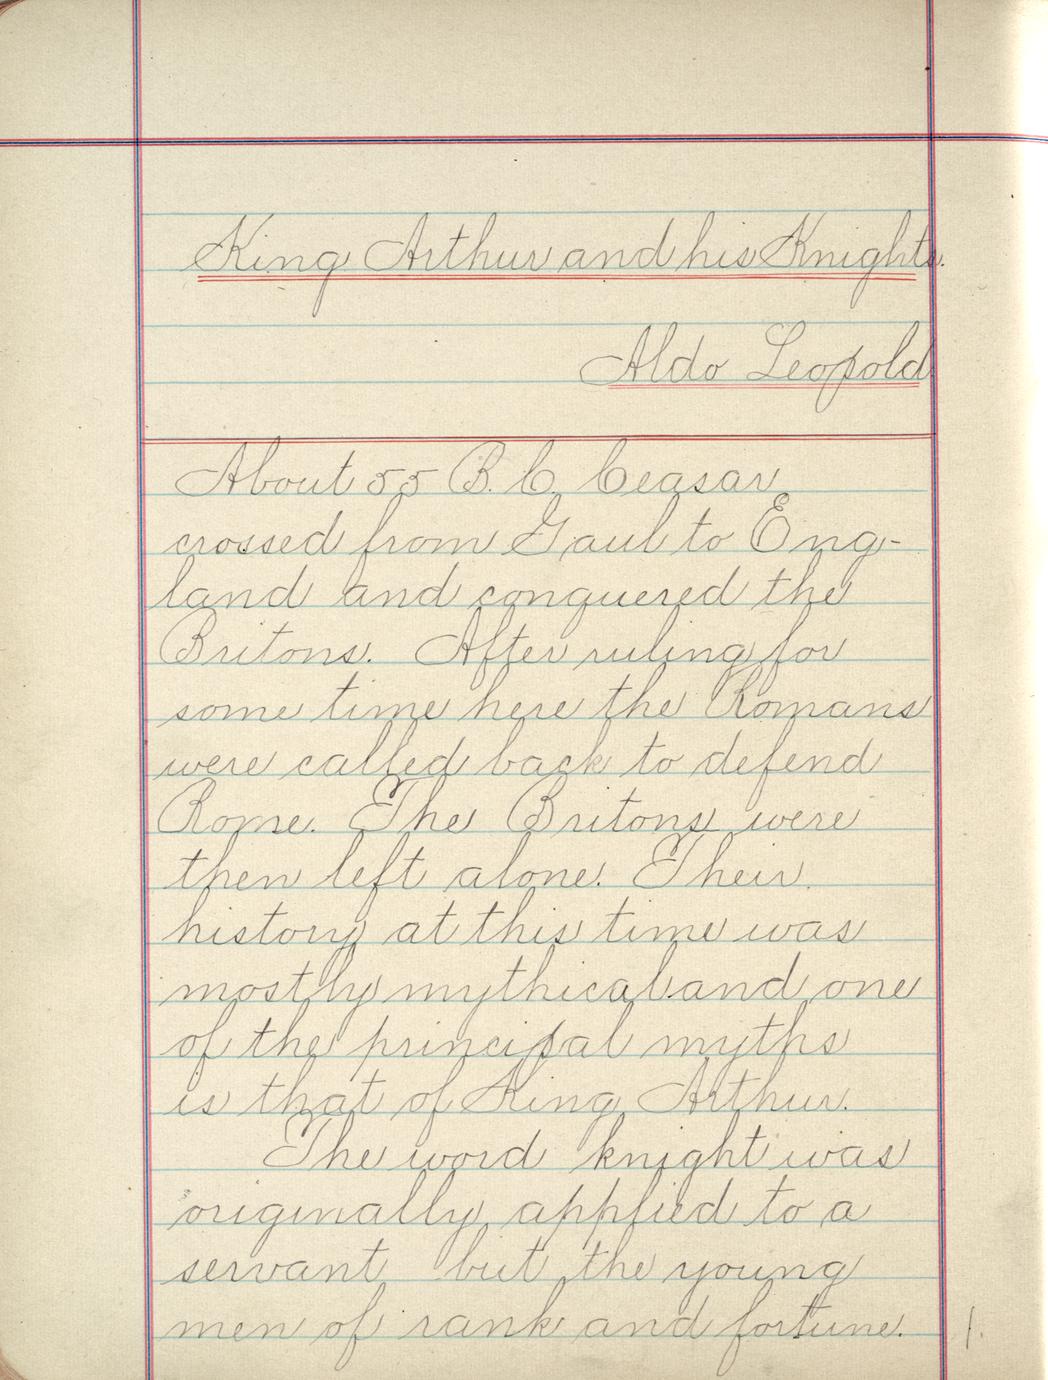 King Arthur and his Knights.
Aldo Leopold
About 55 B.C. Ceasar
crossed from Gaul to Eng-
land and conquered the
Britons. After ruling for
some time here the Romans
were called back to defend
Rome. The Britons were
then left alone. Their
history at this time was
mostly mythical and one
of the principal myths
is that of King Arthur.
The word knight was
originally applied to a
servant but the young
men of rank and fortune.
1.